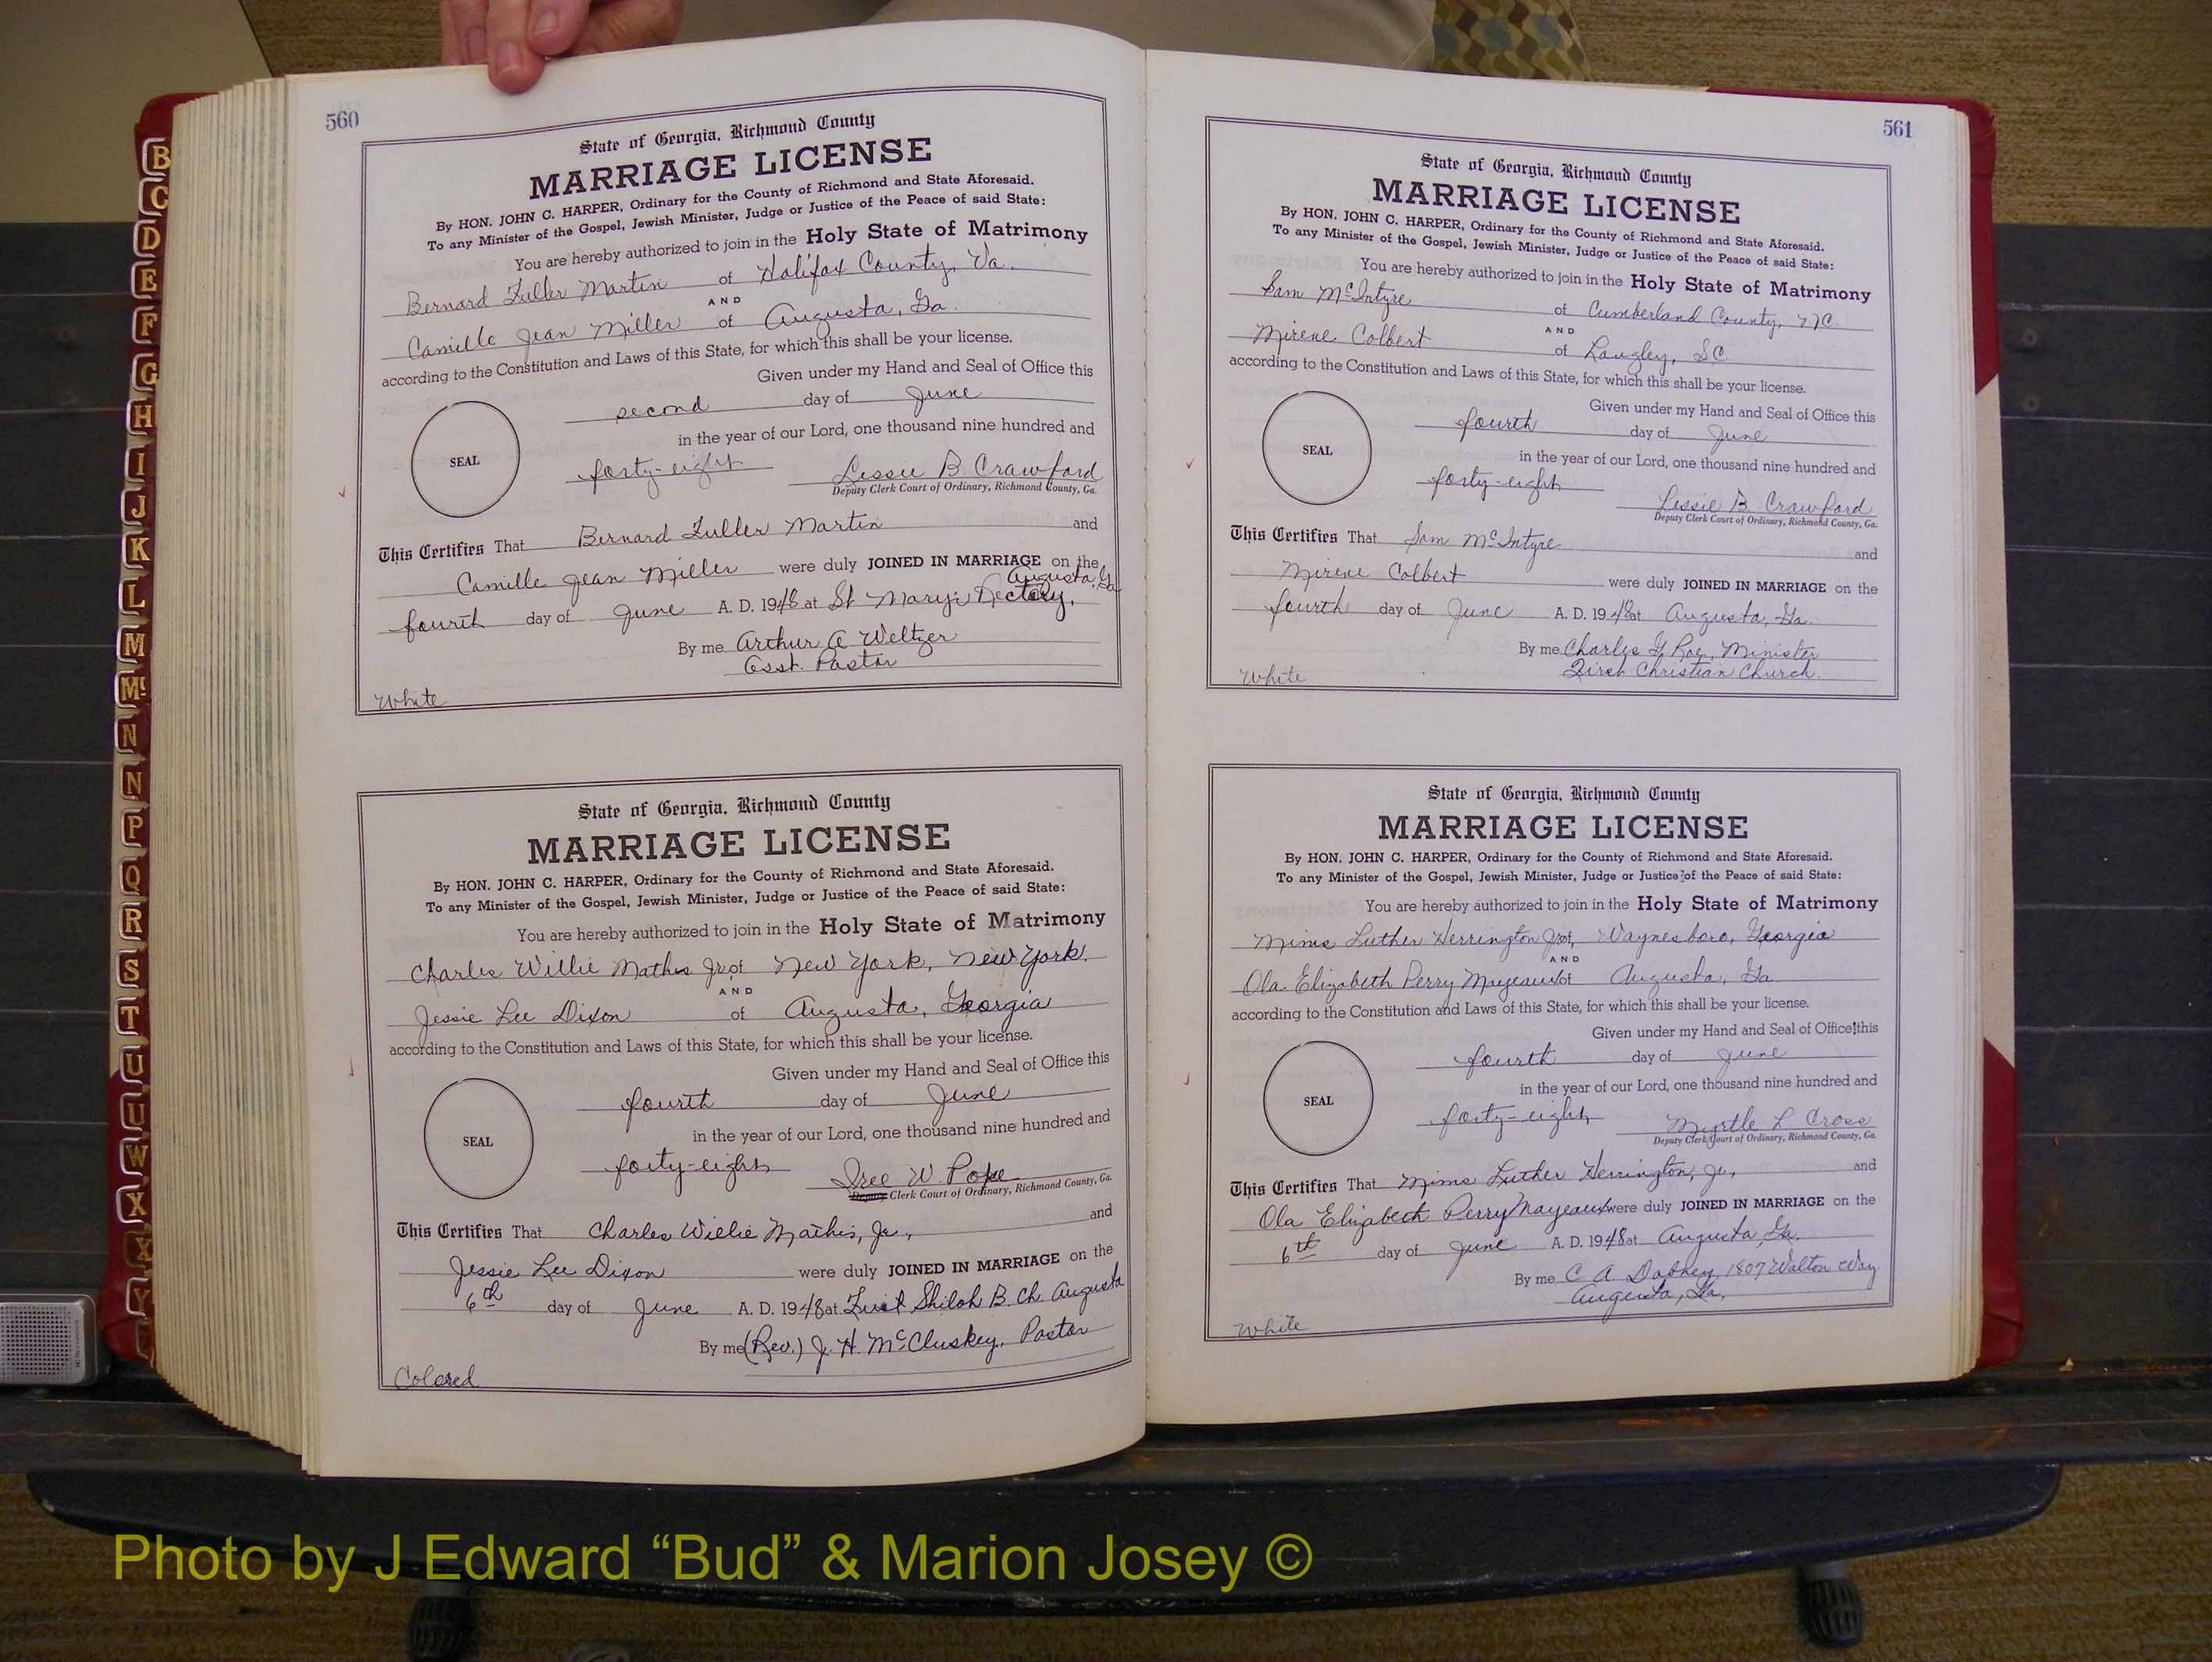 560
State of Georgia, Richmond County
MARRIAGE LICENSE
By HON. JOHN C. HARPER, Ordinary for the County of Richmond and State Aforesaid.
To any Minister of the Gospel, Jewish Minister, Judge or Justice of the Peace of said State:
You are hereby authorized to join in the Holy State of Matrimony
Bernard Fuller Martin of Halifax County, Va.
AND
Camille Jean Miller of Augusta, Ga.
according to the Constitution and Laws of this State, for which this shall be your license.
Given under my Hand and Seal of Office this
second day of June
in the year of our Lord, one thousand nine hundred and
SEAL
forty-eight Lessie B. Crawford
Deputy Clerk Court of Ordinary, Richmond County, Ga.
This Certifies That Bernard Fuller Martin and
Camille Jean Miller were duly JOINED IN MARRIAGE on the
Augusta, Ga
fourth day of June A. D. 1948 at St Mary's Rectory,
By me Arthur A Weltzer
Asst. Pastor
White
State of Georgia, Richmond County
MARRIAGE LICENSE
By HON. JOHN C. HARPER, Ordinary for the County of Richmond and State Aforesaid.
To any Minister of the Gospel, Jewish Minister, Judge or Justice of the Peace of said State:
You are hereby authorized to join in the Holy State of Matrimony
Charles Willie Mathis Jr of New York, New York.
AND
Jessie Lee Dixon of Augusta, Georgia
according to the Constitution and Laws of this State, for which this shall be your license.
Given under my Hand and Seal of Office this
fourth day of June
in the year of our Lord, one thousand nine hundred and
SEAL
forty-eight Iree W. Pope
Deputy Clerk Court of Ordinary, Richmond County, Ga.
This Certifies That Charles Willie Mathis, Jr., and
Jessie Lee Dixon were duly JOINED IN MARRIAGE on the
6th day of June A. D. 1948 at First Shiloh B. Ch. Augusta
By me (Rev.) J. H. McCluskey, Pastor
Colored
561
State of Georgia, Richmond County
MARRIAGE LICENSE
By HON. JOHN C. HARPER, Ordinary for the County of Richmond and State Aforesaid.
To any Minister of the Gospel, Jewish Minister, Judge or Justice of the Peace of said State:
You are hereby authorized to join in the Holy State of Matrimony
Sam McIntyre of Cumberland County, NC.
AND
Mirene Colbert of Langley, SC.
according to the Constitution and Laws of this State, for which this shall be your license.
Given under my Hand and Seal of Office this
fourth day of June
SEAL
in the year of our Lord, one thousand nine hundred and
forty-eight Lessie B. Crawford
Deputy Clerk Court of Ordinary, Richmond County, Ga.
This Certifies That Sam McIntyre and
Mirene Colbert were duly JOINED IN MARRIAGE on the
fourth day of June A. D. 1948 at Augusta, Ga.
By me Charles F. Roe, Minister
First Christian Church.
White
State of Georgia, Richmond County
MARRIAGE LICENSE
By HON. JOHN C. HARPER, Ordinary for the County of Richmond and State Aforesaid.
To any Minister of the Gospel, Jewish Minister, Judge or Justice of the Peace of said State:
You are hereby authorized to join in the Holy State of Matrimony
Mims Luther Herrington Jr of Waynesboro, Georgia
AND
Ola Elizabeth Perry Mayeaux of Augusta, Ga
according to the Constitution and Laws of this State, for which this shall be your license.
Given under my Hand and Seal of Office this
fourth day of June
in the year of our Lord, one thousand nine hundred and
SEAL
forty-eight Myrtle L Cross
Deputy Clerk Court of Ordinary, Richmond County, Ga.
This Certifies That Mims Luther Herrington, Jr., and
Ola Elizabeth Perry Mayeaux were duly JOINED IN MARRIAGE on the
6th day of June A. D. 1948 at Augusta, Ga.
By me C. A. Dabney, 1807 Walton Way
Augusta, Ga.
White
B
C
D
E
F
G
H
I
J
K
L
M
Mc
N
N
P
Q
R
S
T
U
U
W
X
X
Y
Photo by J Edward “Bud” & Marion Josey ©